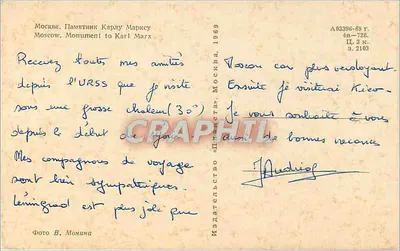 Москва. Памятник Карлу Марксу
Moscow. Monument to Karl Marx
Recevez toutes mes amitiés
depuis l'URSS que je visite
sous une grosse chaleur (30°)
depuis le début du séjour
Mes compagnons de voyage
sont bien sympathiques.
Léningrad est plus joli que
Фото В. Монина
Издательство «Планета». Москва. 1969
А03396-68 г.
6п-728.
Ц. 3 к.
з. 2103
Moscou car plus verdoyant.
Ensuite je visiterai Kiev.
Je vous souhaite à vous
aussi de bonnes vacances
CRAPHTI